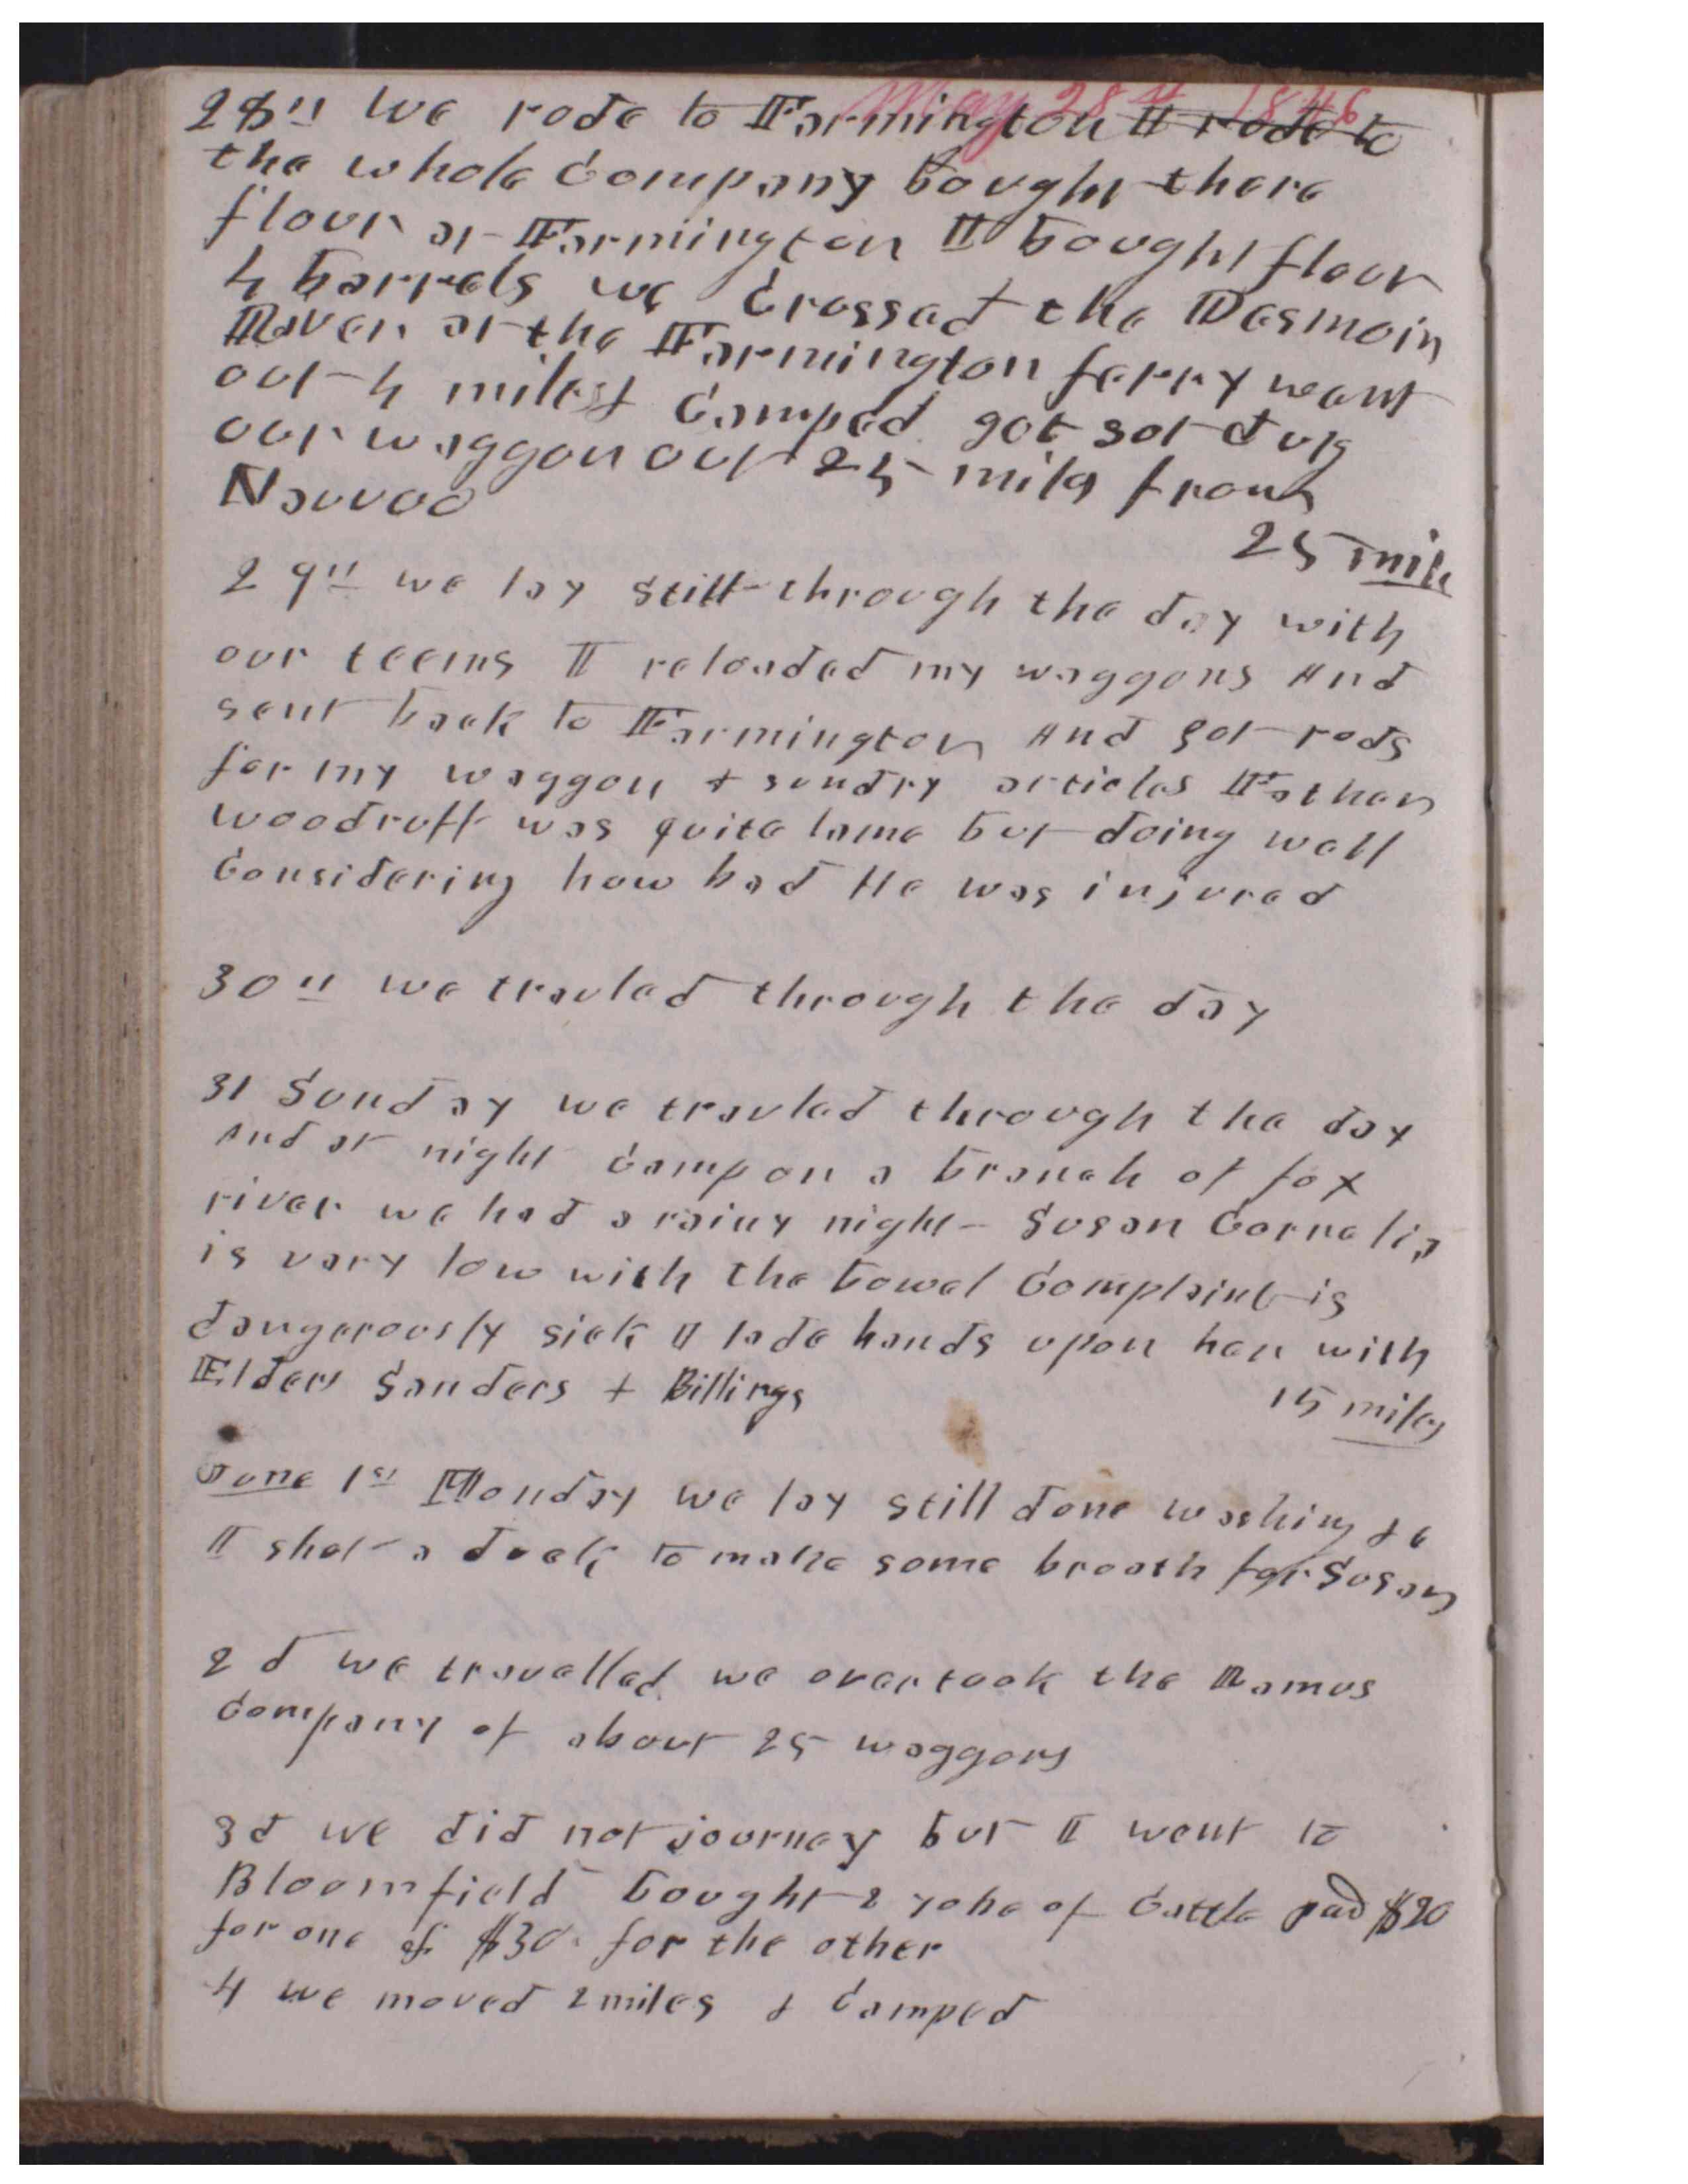 May 28th 1846
28th We rode to Farmington I rode to
the whole Company bought there
flour at Farmington I bought flour
4 barrels we crossed the Desmoin
River at the Farmington ferry went
out 4 miles & camped got sot dug
our waggon out 25 mile from
Nauvoo
25 mile
29th we lay still through the day with
our teems I reloaded my waggons And
sent back to Farmington And got rods
for my waggon & sundry articles Father
woodruff was quite lame but doing well
Considering how bad He was injured
30th we travled through the day
31 Sunday we travled through the day
And at night camp on a branch of fox
river we had a rainy night Susan Cornelia
is vary low with the bowel Complaint is
dangerously sick I lade hands upon her with
Elders Sanders & Billings
15 miles
June 1st Monday we lay still done washing &c
I shot a duck to make some broath for Susan
2d we travelled we overtook the Ramus
company of about 25 waggons
3d we did not journey but I went to
Bloomfield bought 2 yoke of Cattle pad $20
for one & $30 for the other
4 we moved 2 miles & camped